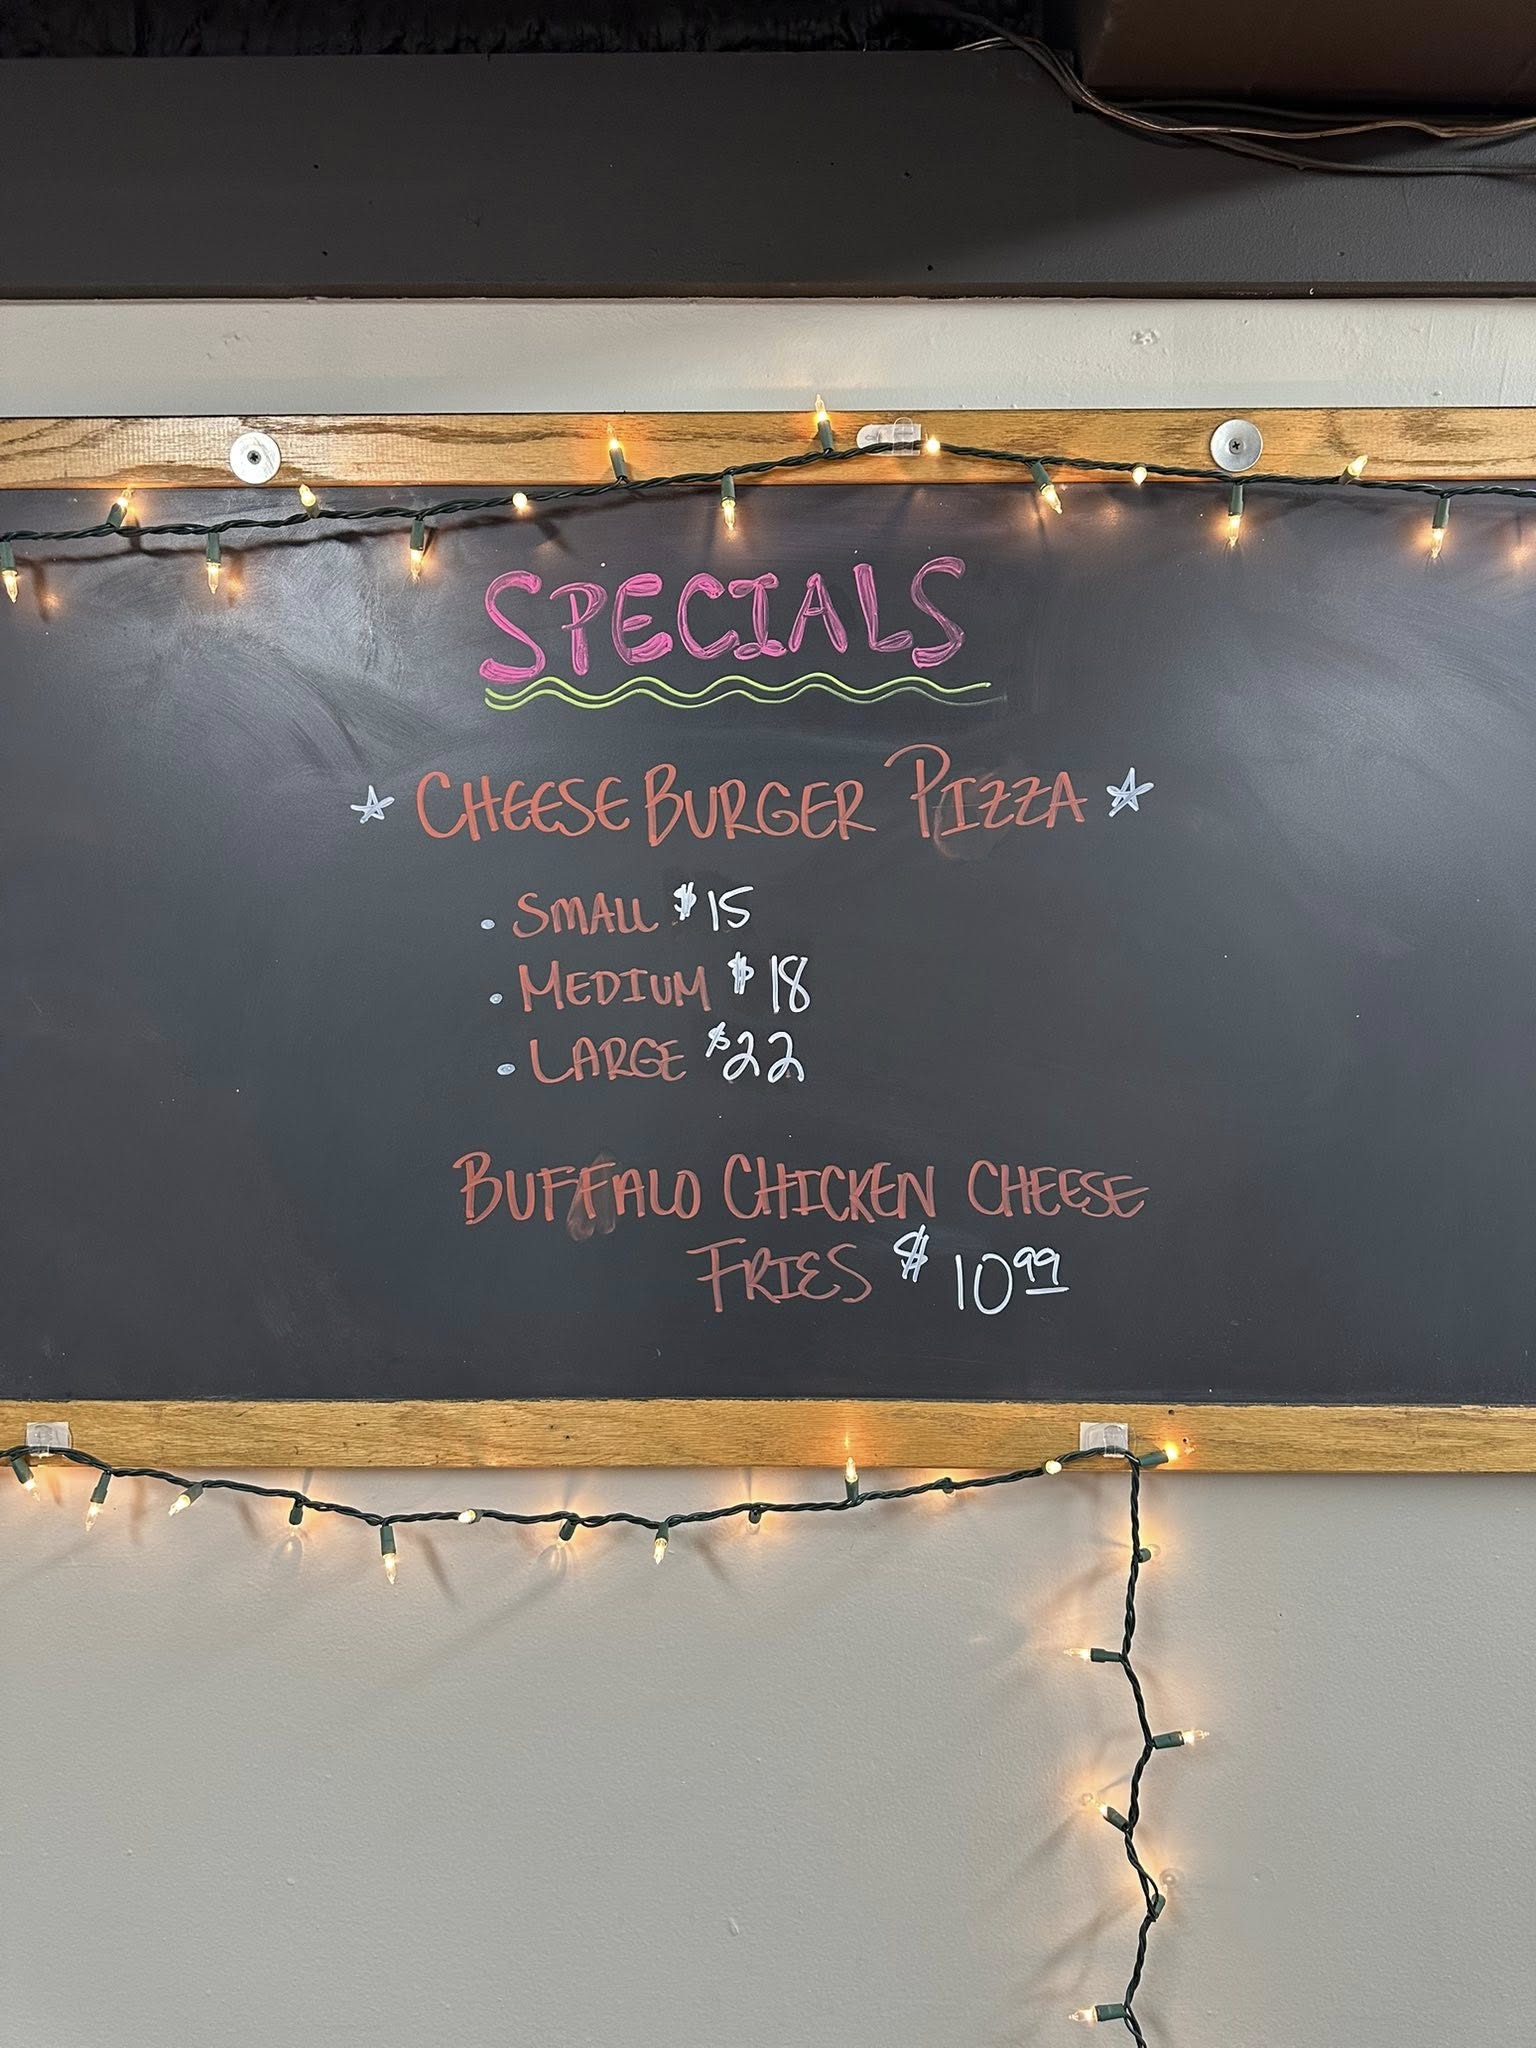 SPECIALS
CHEESE BURGER PIZZA
• SMALL $15
• MEDIUM $18
• LARGE $22
BUFFALO CHICKEN CHEESE
FRIES $10.99